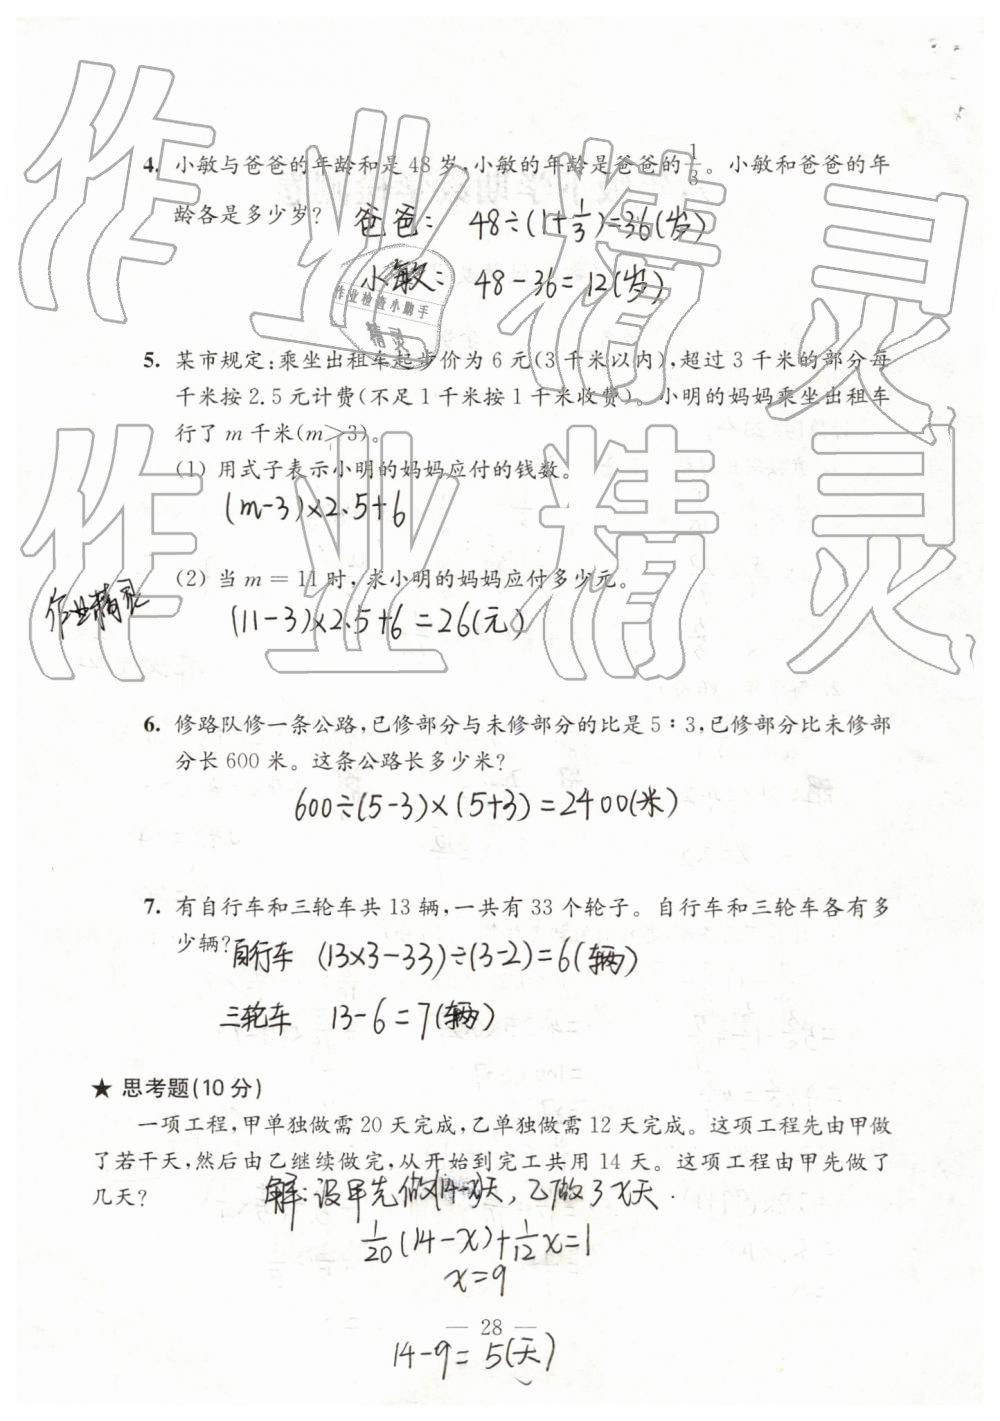 4. 小敏与爸爸的年龄和是48岁,小敏的年龄是爸爸的1/3。小敏和爸爸的年
龄各是多少岁?
爸爸: 48÷(1+1/3)=36(岁)
小敏: 48-36=12(岁)
作业检查小助手
精灵
5. 某市规定:乘坐出租车起步价为6元(3千米以内),超过3千米的部分每
千米按2.5元计费(不足1千米按1千米收费)。小明的妈妈乘坐出租车
行了m千米(m>3)。
(1) 用式子表示小明的妈妈应付的钱数。
(m-3)×2.5+6
(2) 当m=11时,求小明的妈妈应付多少元。
(11-3)×2.5+6=26(元)
作业精灵
6. 修路队修一条公路,已修部分与未修部分的比是5:3,已修部分比未修部
分长600米。这条公路长多少米?
600÷(5-3)×(5+3)=2400(米)
7. 有自行车和三轮车共13辆,一共有33个轮子。自行车和三轮车各有多
少辆?
自行车 (13×3-33)÷(3-2)=6(辆)
三轮车 13-6=7(辆)
★ 思考题(10分)
一项工程,甲单独做需20天完成,乙单独做需12天完成。这项工程先由甲做
了若干天,然后由乙继续做完,从开始到完工共用14天。这项工程由甲先做了
几天?
解:设甲先做(14-x)天,乙做了x天.
1/20(14-x)+1/12x=1
x=9
— 28 —
14-9=5(天)
作业精灵
作业精灵